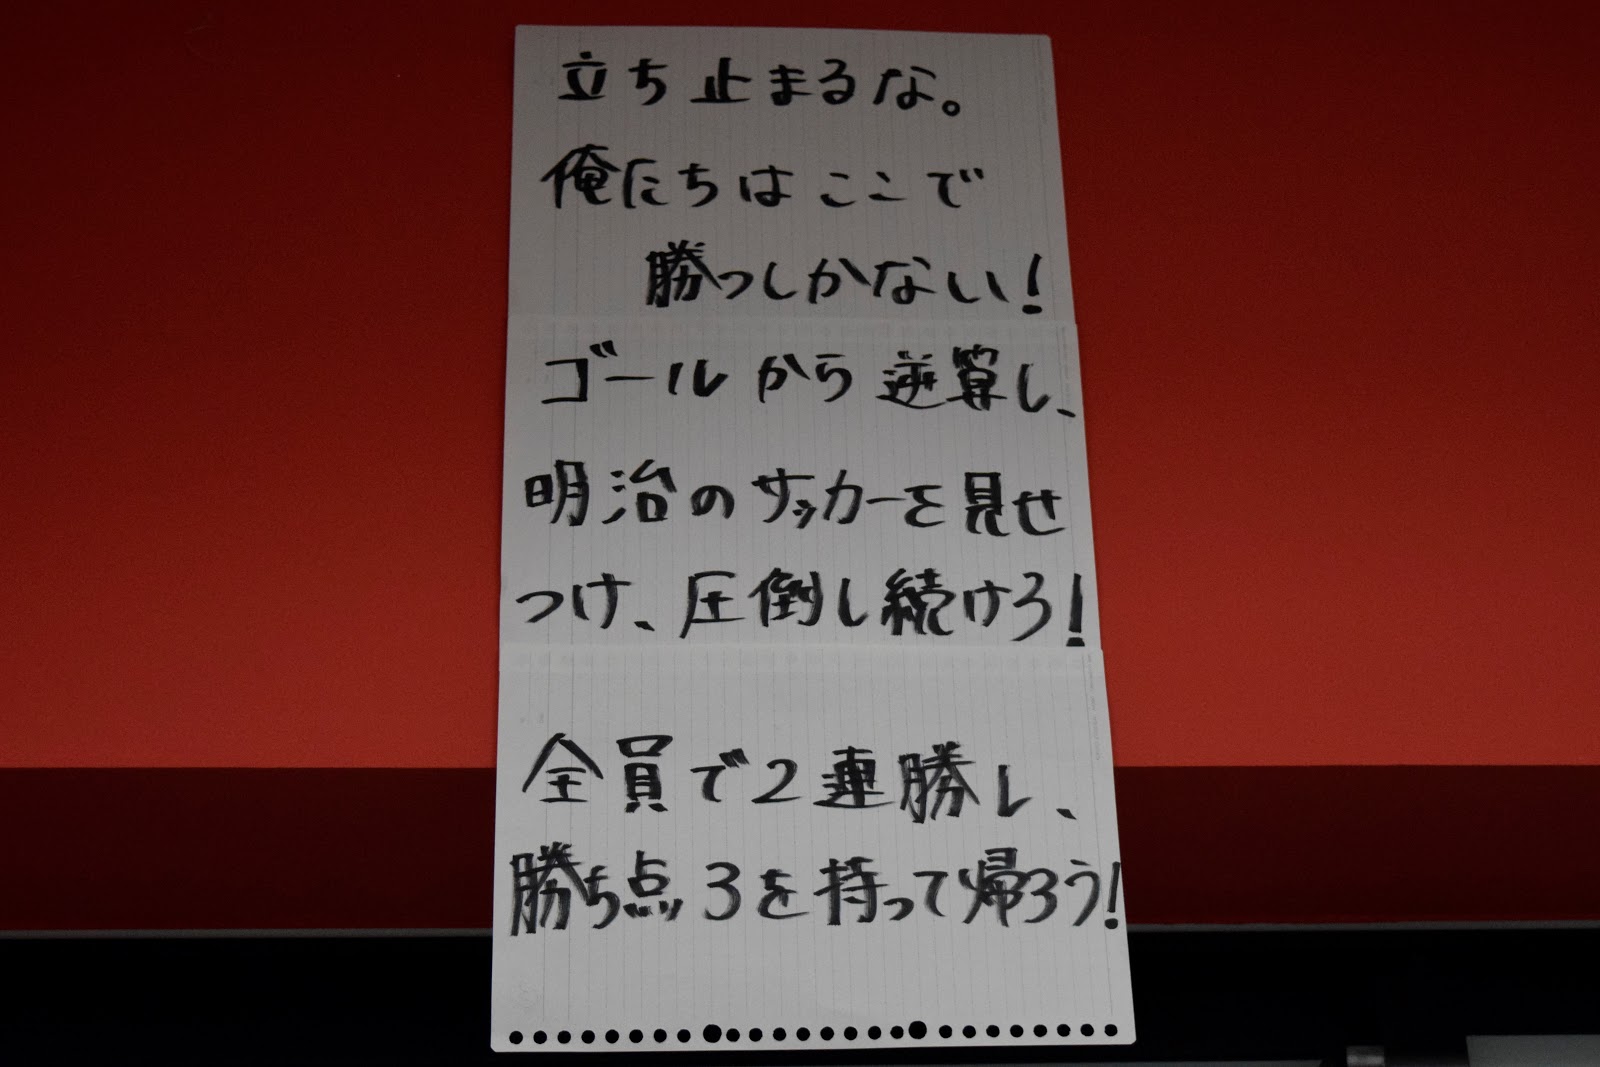 立ち止まるな。
俺たちはここで
勝つしかない!
ゴールから逆算し、
明治のサッカーを見せ
つけ、圧倒し続けろ!
全員で2連勝し、
勝ち点3を持って帰ろう!